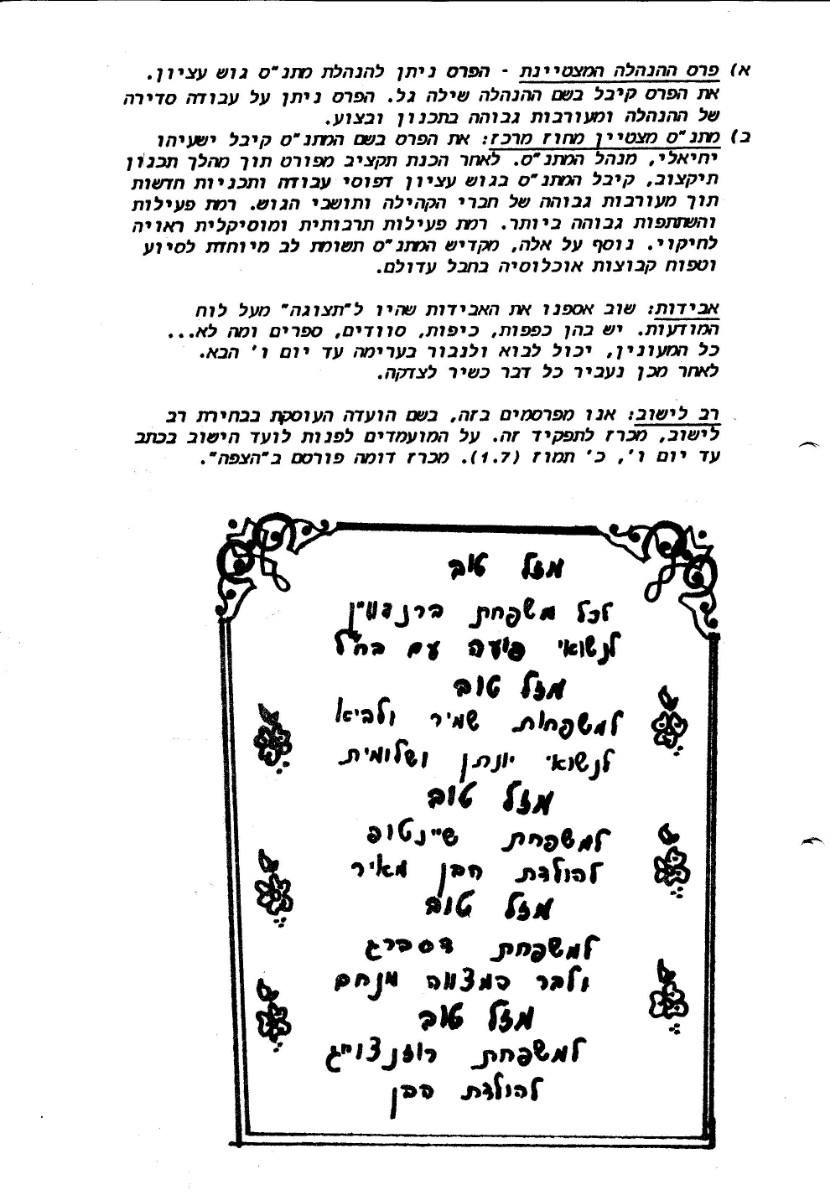 א) פרס ההנהלה המצטיינת - הפרס ניתן להנהלת מתנ"ס גוש עציון.
את הפרס קיבל בשם ההנהלה שילה גל. הפרס ניתן על עבודה סדירה
של ההנהלה ומעורבות גבוהה בתכנון ובצוע.
ב) מתנ"ס מצטיין מחוז מרכז: את הפרס בשם המתנ"ס קיבל ישעיהו
יחיאלי, מנהל המתנ"ס. לאחר הכנת תקציב מפורט תוך מהלך תכנון
תיקצוב, קיבל המתנ"ס בגוש עציון דפוסי עבודה ותכניות חדשות
תוך מעורבות גבוהה של חברי הקהילה ותושבי הגוש. רמת פעילות
והשתתפות גבוהה ביותר. רמת פעילות תרבותית ומוסיקלית ראויה
לחיקוי. נוסף על אלה, מקדיש המתנ"ס תשומת לב מיוחדת לסיוע
וטפוח קבוצות אוכלוסיה בחבל עדולם.
אבידות: שוב אספנו את האבידות שהיו ל"תצוגה" מעל לוח
המודעות. יש בהן כפפות, כיפות, סוודים, ספרים ומה לא...
כל המעונין, יכול לבוא ולנבור בערימה עד יום ו' הבא.
לאחר מכן נעביר כל דבר כשיר לצדקה.
רב לישוב: אנו מפרסמים בזה, בשם הועדה העוסקת בבחירת רב
לישוב, מכרז לתפקיד זה. על המועמדים לפנות לועד הישוב בכתב
עד יום ו', כ' תמוז (1.7). מכרז דומה פורסם ב"הצפה".
מזל טוב
לכל משפחת ברנדווין
לנשואי פועה עם בח"ל
מזל טוב
למשפחות שמיר ולביא
לנשואי יונתן ושלומית
מזל טוב
למשפחת שיינטופ
להולדת הבן מאיר
מזל טוב
למשפחת דסברג
ולבר המצווה מנחם
מזל טוב
למשפחת רוזנצוייג
להולדת הבן